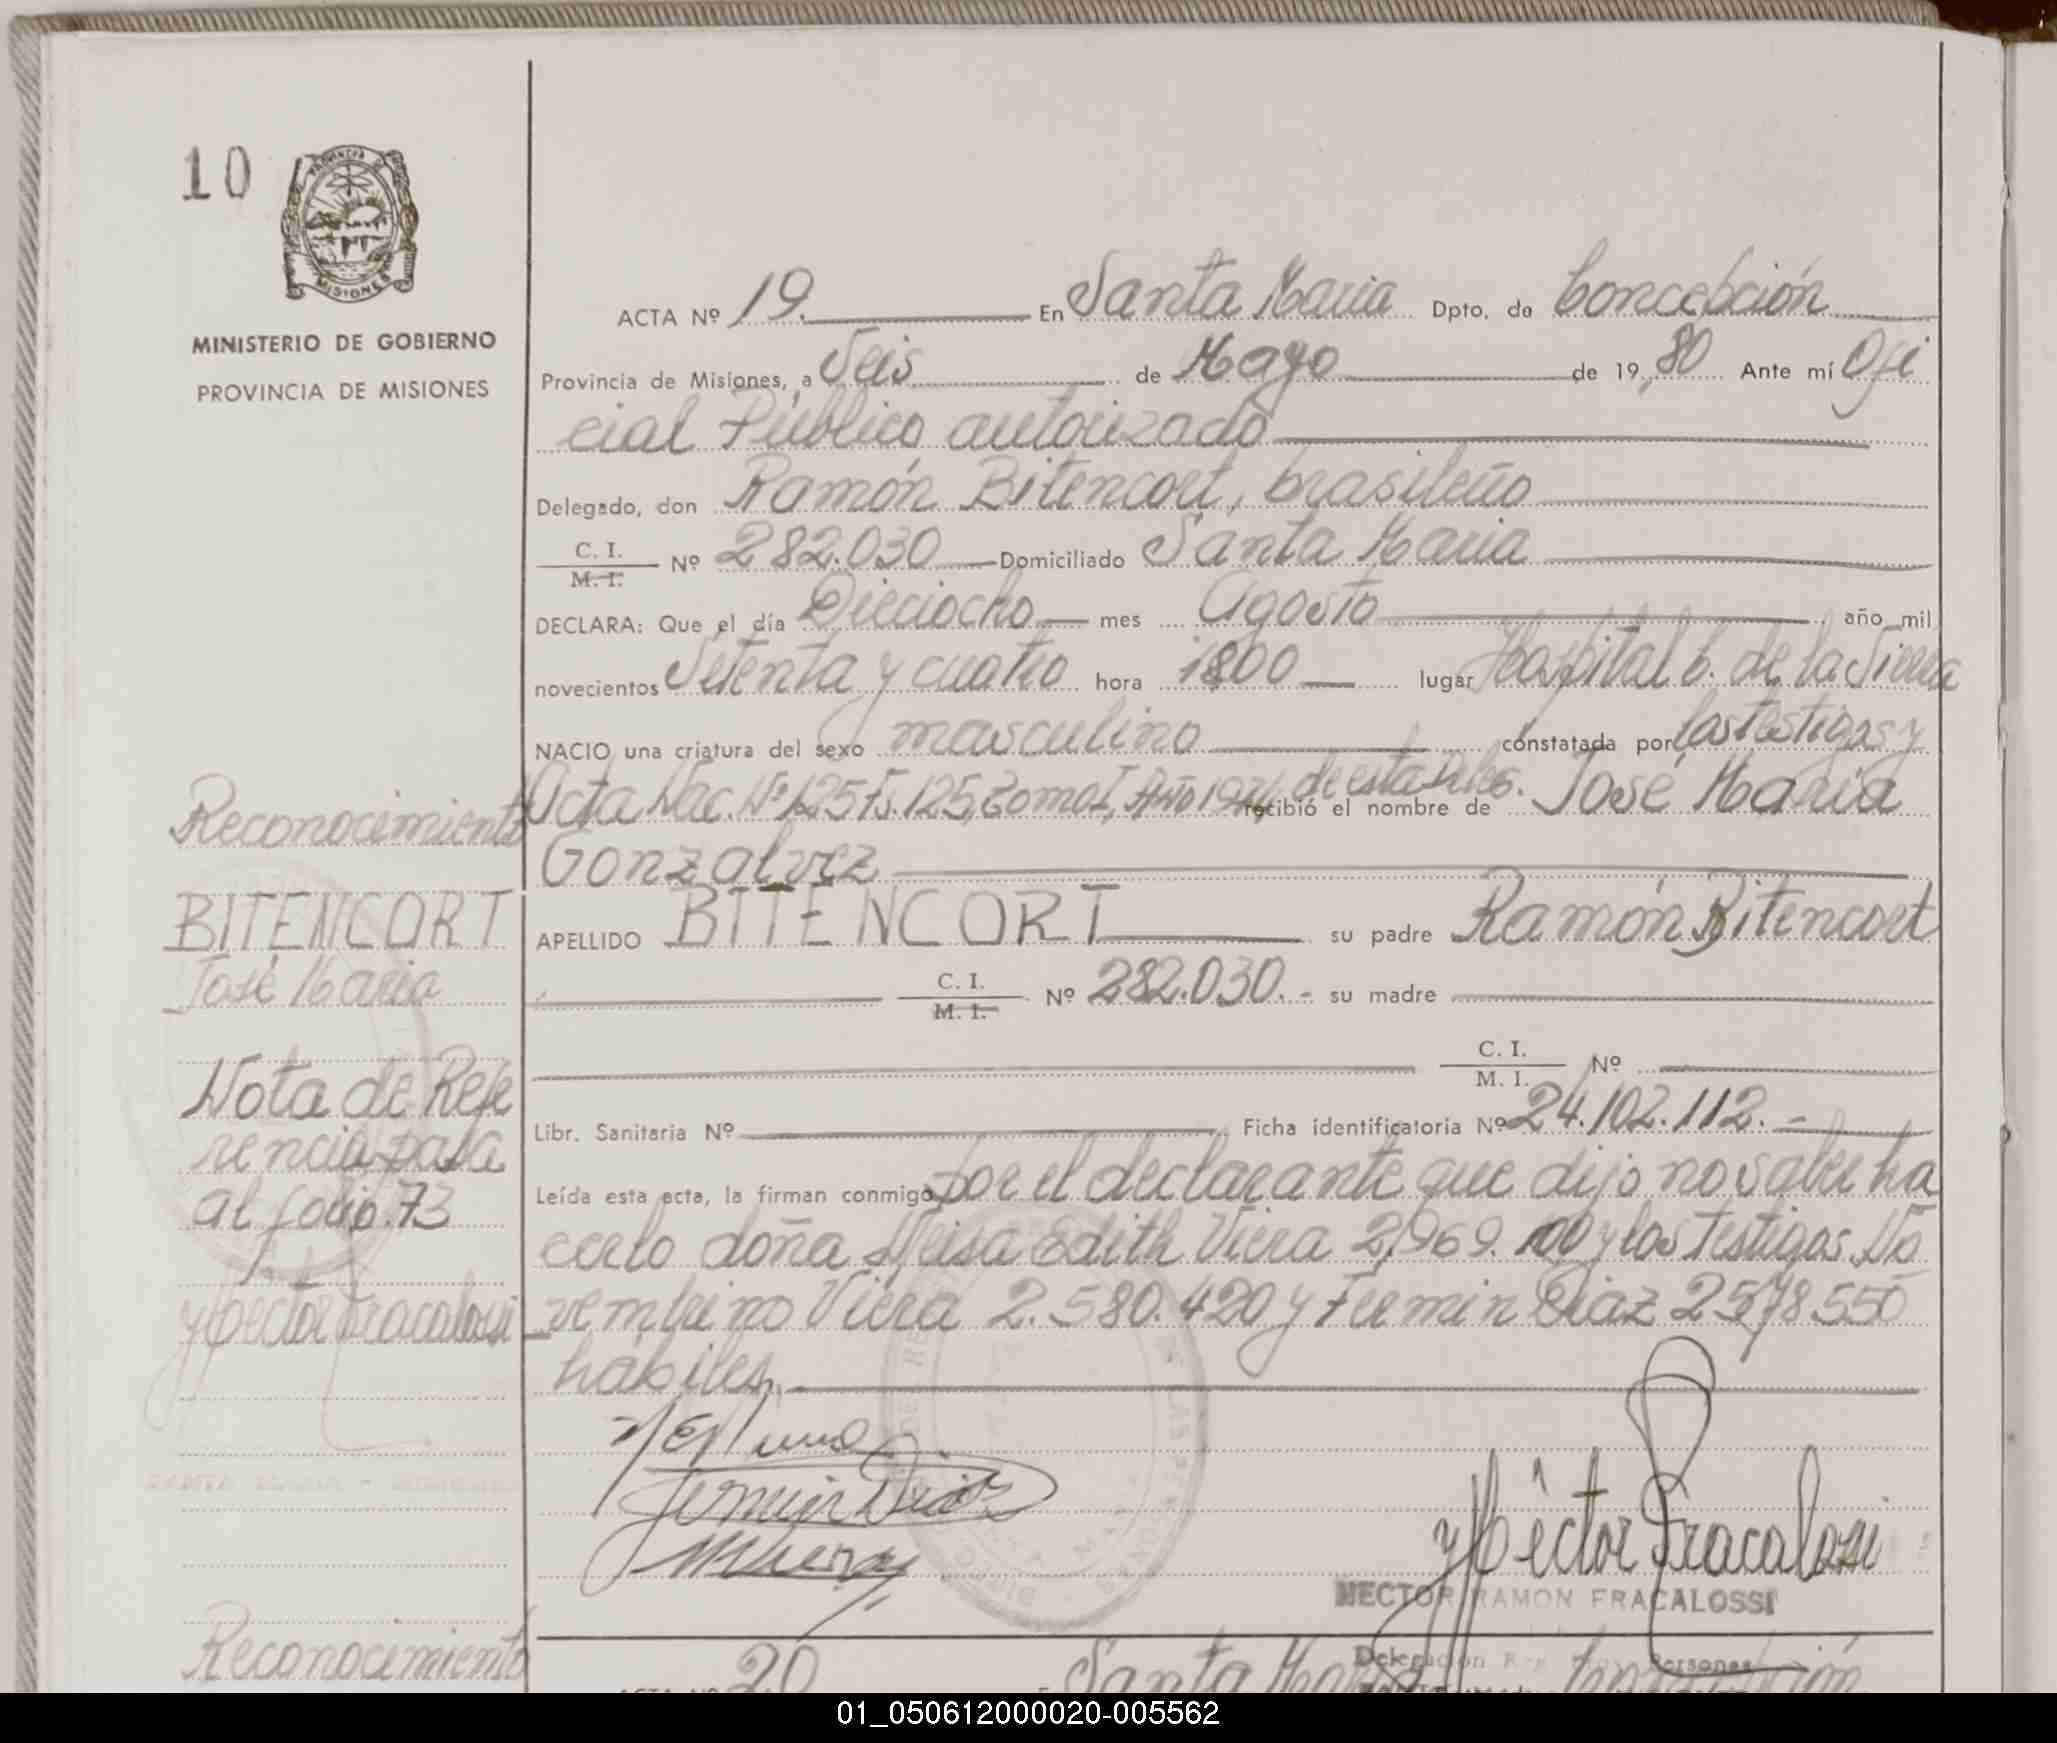 10
PROVINCIA DE
MISIONES
MINISTERIO DE GOBIERNO
PROVINCIA DE MISIONES
ACTA Nº 19. En Santa Maria Dpto. de Concepción
Provincia de Misiones, a Seis de Mayo de 19 80 Ante mí Ofi
cial Público autorizado
Delegado, don Ramón Bitencort, brasileño
C. I.
M. I. Nº 282.030 Domiciliado Santa Maria
DECLARA: Que el día Dieciocho mes Agosto año mil
novecientos Setenta y cuatro hora 1800 lugar Hospital C. de la Sierra
NACIO una criatura del sexo masculino constatada por los testigos y
Acta Nac. Nº 125 Fs. 125, Tomo I, Año 1974 de esta Deleg. recibió el nombre de José Maria
Gonzalvez
APELLIDO BITENCORT su padre Ramón Bitencort
C. I.
M. I. Nº 282.030.- su madre
C. I.
M. I. Nº
Libr. Sanitaria Nº Ficha identificatoria Nº 24.102.112.-
Leída esta acta, la firman conmigo por el declarante que dijo no saber ha
cerlo doña Neisa Edith Viera 2.969.100 y los testigos No
vembrino Viera 2.580.420 y Fermin Diaz 2578550
hábiles.
Fermin Diaz
Héctor Fracalossi
HECTOR RAMON FRACALOSSI
Reconocimiento
BITENCORT
José Maria
Nota de Refe
rencia pasa
al folio 73
Hector Fracalossi
SANTA MARIA - MISIONES
Reconocimiento
20 Santa Maria Concepción
Delegación Personas
01_050612000020-005562